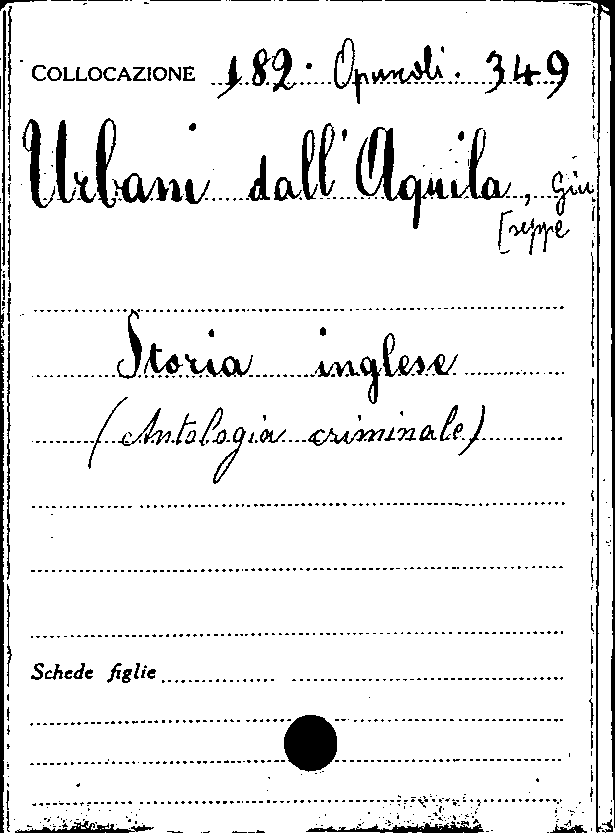 COLLOCAZIONE 182. Opuscoli. 349
Urbani dall'Aquila, Giu
[seppe
Storia inglese
(Antologia criminale)
Schede figlie